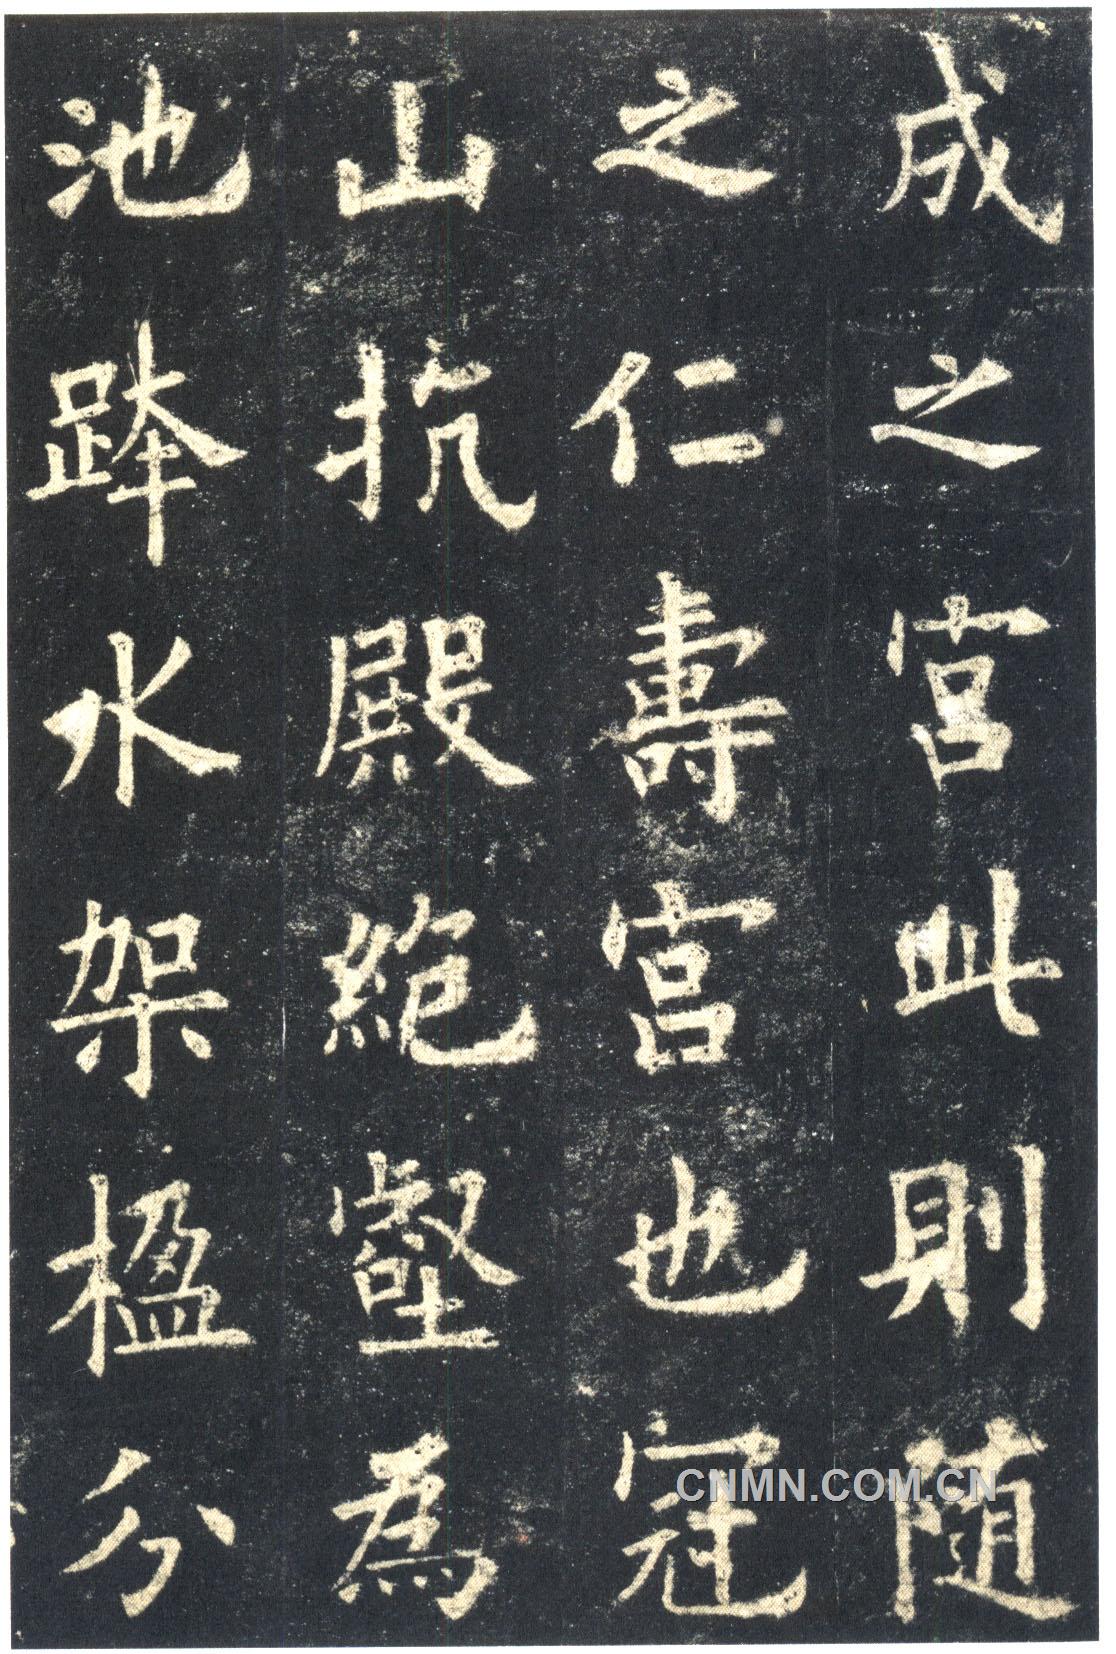 成之宮此則随
之仁壽宮也冠
山抗殿絶壑為
池跨水架楹分
CNMN.COM.CN